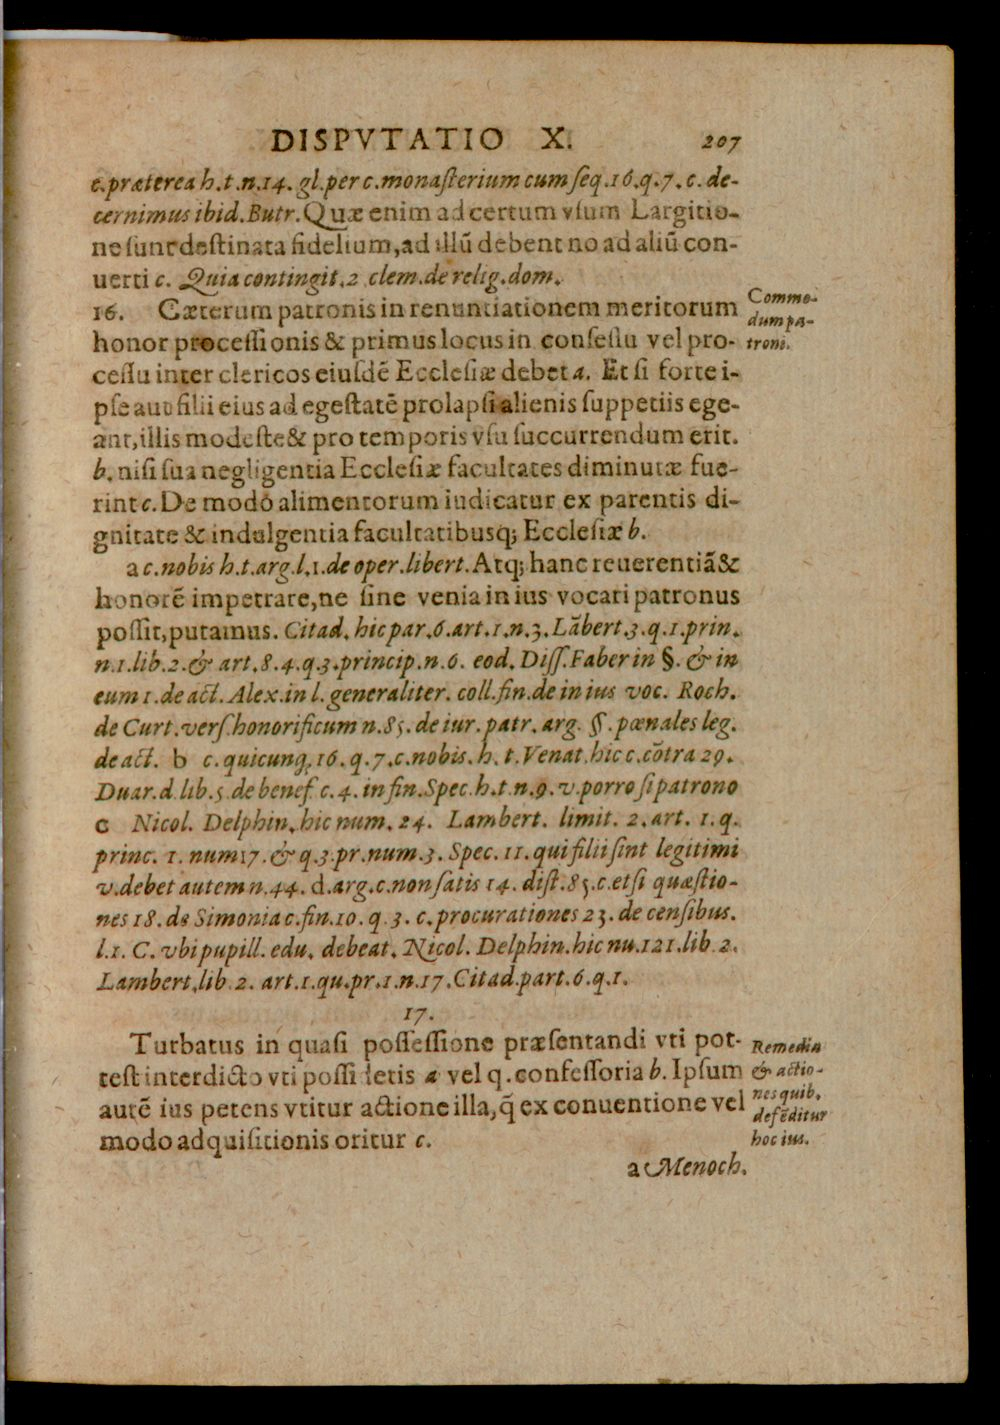 DISPVTATIO X. 207
c. præterea h.t.n.14. gl. per c. monasterium cum seq. 16. q. 7. c. de-
cernimus ibid. Butr. Quæ enim ad certum vsum Largitio-
ne sunt destinata fidelium, ad illũ debent no ad aliũ con-
uerti c. Quia contingit. 2 clem. de relig. dom.
16. Cæterum patronis in renuntiationem meritorum
honor processionis & primus locus in consessu vel pro-
cessu inter clericos eiusdẽ Ecclesiæ debet a. Et si forte i-
pse aut filii eius ad egestatẽ prolapsi alienis suppetiis ege-
ant, illis modeste & pro temporis vsu succurrendum erit.
b. nisi sua negligentia Ecclesiæ facultates diminutæ fue-
rint c. De modo alimentorum iudicatur ex parentis di-
gnitate & indulgentia facultatibusq; Ecclesiæ b.
Commo-
dum pa-
troni.
a c. nobis h.t. arg. l. 1. de oper. libert. Atq; hanc reuerentiã &
honorẽ impetrare, ne sine venia in ius vocari patronus
possit, putamus. Citad. hic par. 6. art. 1. n. 3. Lãbert. 3. q. 1. prin.
n. 1. lib. 2. & art. 8. 4. q. 3. princip. n. 6. eod. Diss. Faber in §. & in
eum 1. de act. Alex. in l. generaliter. coll. fin. de in ius voc. Roch.
de Curt. vers. honorificum n. 85. de iur. patr. arg. §. pænales leg.
de act. b c. quicunq. 16. q. 7. c. nobis. h. t. Venat. hic c. cõtra 29.
Duar. d. lib. 5. de benef. c. 4. in fin. Spec. h.t. n. 9. v. porro si patrono
c Nicol. Delphin. hic num. 24. Lambert. limit. 2. art. 1. q.
princ. 1. num 17. & q. 3. pr. num. 3. Spec. 11. qui filii sint legitimi
v. debet autem n. 44. d. arg. c. non satis 14. dist. 85. c. etsi quæstio-
nes 18. de Simonia c. fin. 10. q. 3. c. procurationes 23. de censibus.
l. 1. C. vbi pupill. edu. debeat. Nicol. Delphin. hic nu. 121. lib. 2.
Lambert. lib. 2. art. 1. qu. pr. 1. n. 17. Citad. part. 6. q. 1.
17.
Turbatus in quasi possessione præsentandi vti pot-
test interdicto vti possidetis a vel q. confessoria b. Ipsum
autẽ ius petens vtitur actione illa, q̃ ex conuentione vel
modo adquisitionis oritur c.
Remedia
& actio-
nes quib.
defẽditur
hoc ius.
a Menoch.